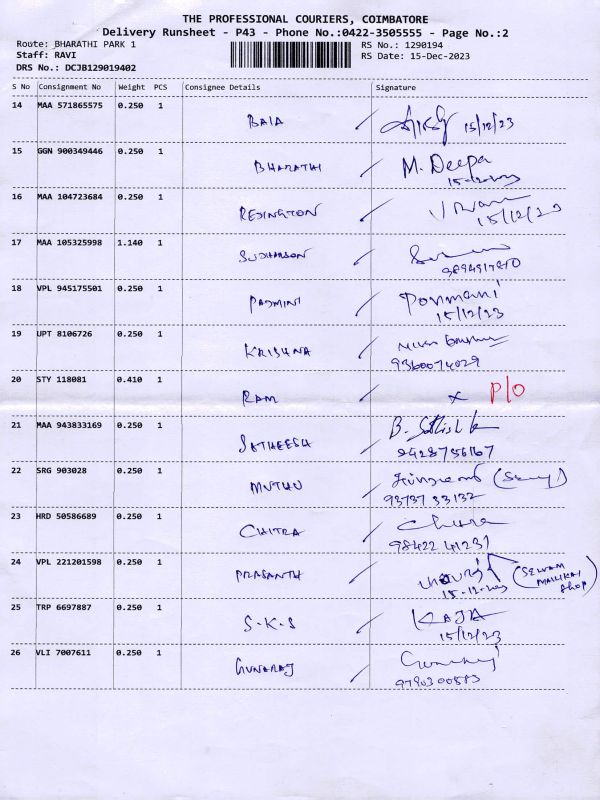 THE PROFESSIONAL COURIERS, COIMBATORE
Delivery Runsheet - P43 - Phone No.:0422-3505555 - Page No.:2
Route: BHARATHI PARK 1 RS No.: 1290194
Staff: RAVI RS Date: 15-Dec-2023
DRS No.: DCJB129019402
S No Consignment No Weight PCS Consignee Details Signature
14 MAA 571865575 0.250 1
BALA 15/12/23
15 GGN 900349446 0.250 1
BHARATHI M. Deepa
16 MAA 104723684 0.250 1
REDINGTON
15/12/23
17 MAA 105325998 1.140 1
SUDHARSON
18 VPL 945175501 0.250 1
PADMINI Ponmani
15/12/23
19 UPT 8106726 0.250 1
KRISHNA
9360074029
20 STY 118081 0.410 1
RAM x P/O
21 MAA 943833169 0.250 1
SATHEESH B. Sathish k
22 SRG 903028 0.250 1
MUTHU
93737 33132
23 HRD 50586689 0.250 1
CHITRA
98422 41231
24 VPL 221201598 0.250 1
PRASANTH (SELVAM
MALLIKAI
Shop)
25 TRP 6697887 0.250 1
S.K.S KAJA
15/12/23
26 VLI 7007611 0.250 1
GUNARAJ